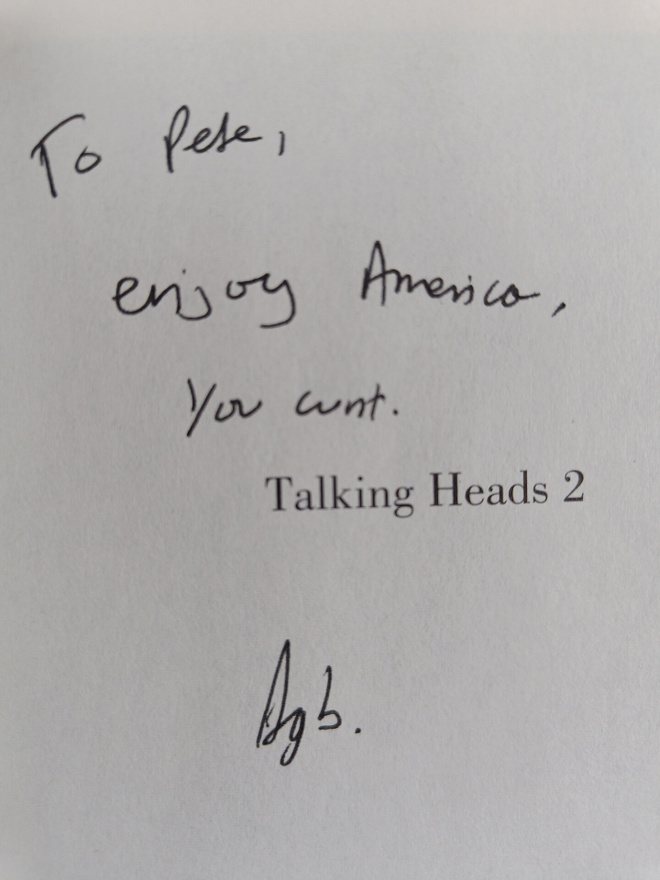 To Pete,
enjoy America,
You cunt.
Talking Heads 2
Agb.